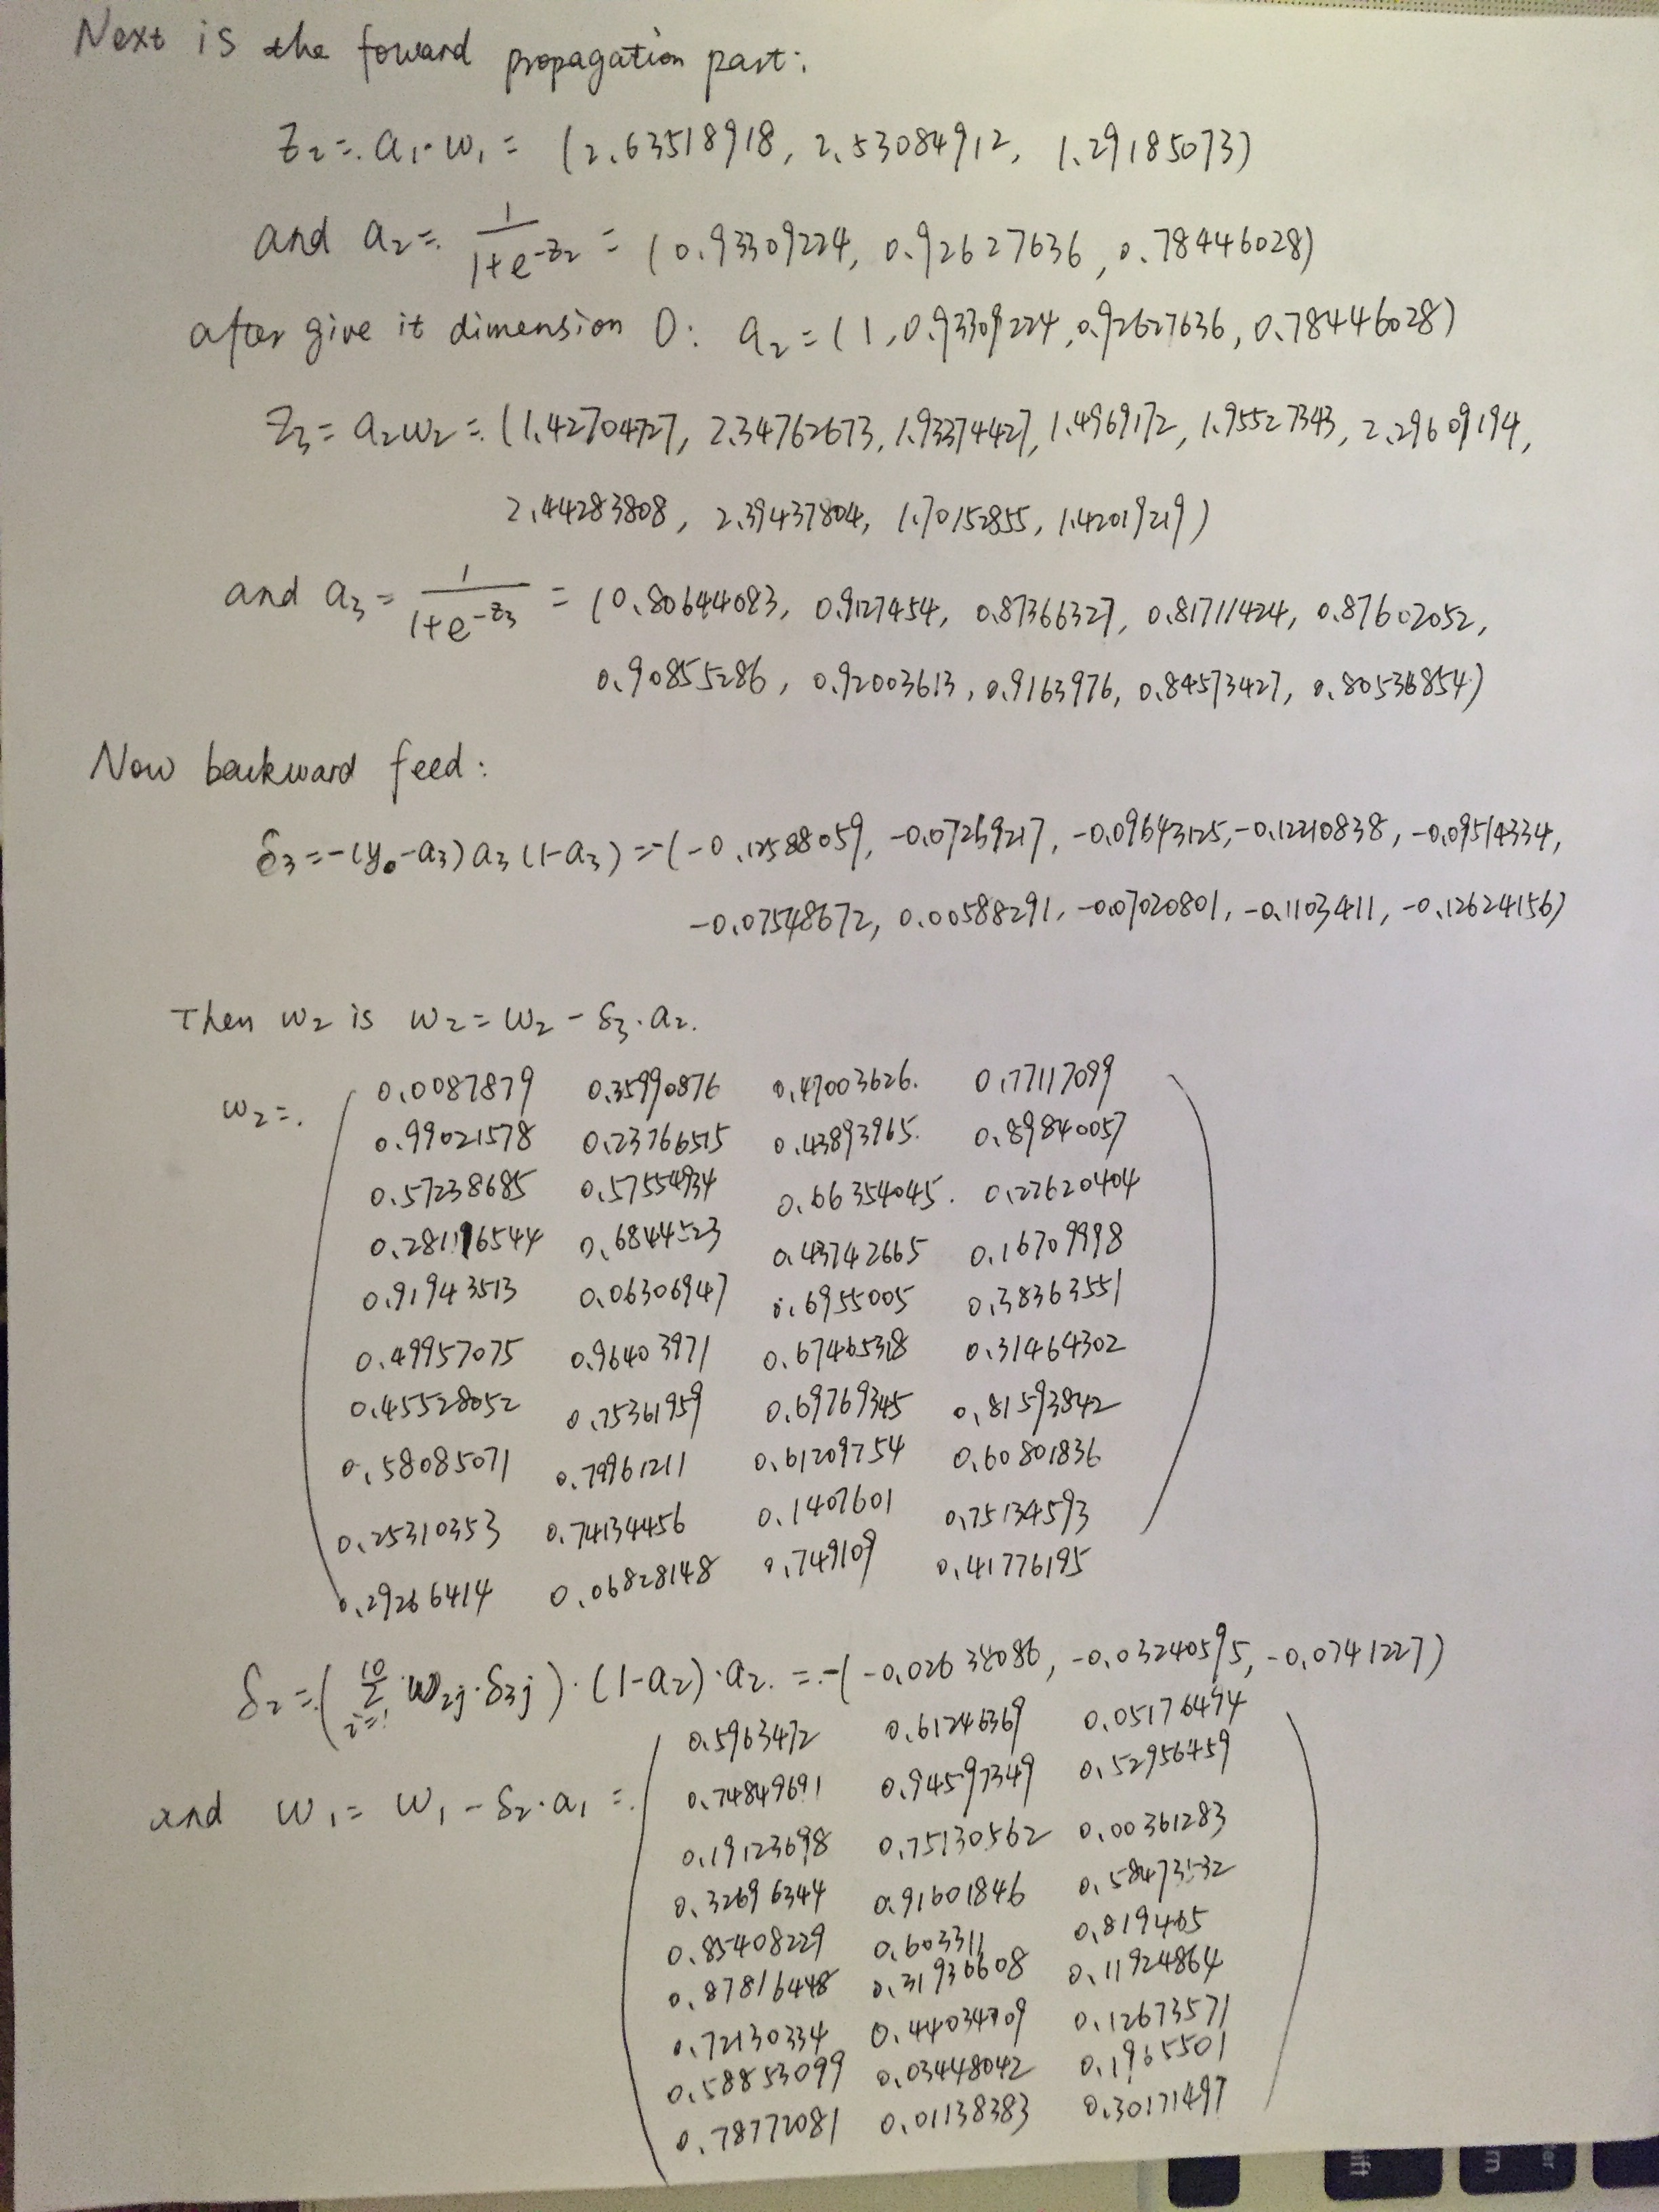 Next is the foward propagation part:
z₂ = a₁·w₁ = (2.63518918, 2.53084912, 1.29185073)
and a₂ = 1/(1+e^(-z₂)) = (0.93309224, 0.92627636, 0.78446028)
after give it dimension 0: a₂ = (1, 0.93309224, 0.92627636, 0.78446028)
z₃ = a₂w₂ = (1.42704727, 2.34762673, 1.93374427, 1.4969172, 1.95527343, 2.29609194,
2.44283808, 2.39437804, 1.70152855, 1.42019219)
and a₃ = 1/(1+e^(-z₃)) = (0.80644083, 0.9127454, 0.87366327, 0.81711424, 0.87602052,
0.90855286, 0.92003613, 0.9163976, 0.84573427, 0.80536854)
Now backward feed:
δ₃ = -(y₀-a₃)a₃(1-a₃) = -(-0.12588059, -0.07269217, -0.09643125, -0.12210838, -0.09514334,
-0.07548672, 0.00588291, -0.07020801, -0.1103411, -0.12624156)
Then w₂ is w₂ = w₂ - δ₃·a₂.
w₂ =
0.0087879 0.35990876 0.47003626. 0.77117099
0.99021578 0.23766515 0.43893965. 0.89840057
0.57238685 0.57554934 0.66354045. 0.27620404
0.6844523 0.43742665 0.16709998
0.91943513 0.06306947 0.6955005 0.38363551
0.49957075 0.96403971 0.67465318 0.31464302
0.45528052 0.75361959 0.69769345 0.81593842
0.58085071 0.79961211 0.61209754 0.60801836
0.25310353 0.74134456 0.1407601 0.75134593
0.29266414 0.06828148 0.749109 0.41776195
δ₂ = (Σ_{i=1}^{10} w₂j·δ₃j)·(1-a₂)·a₂. = -(-0.02638086, -0.03240595, -0.0741227)
and w₁ = w₁ - δ₂·a₁ =
0.5963472 0.61246369 0.05176474
0.74849691 0.94597349 0.52956459
0.19123698 0.75130562 0.00361283
0.32696344 0.91601846 0.58473532
0.85408229 0.603311 0.819465
0.87816448 0.31936608 0.11924864
0.72130334 0.44034709 0.12673571
0.58853099 0.03448042 0.1965501
0.78772081 0.01138383 0.30171497